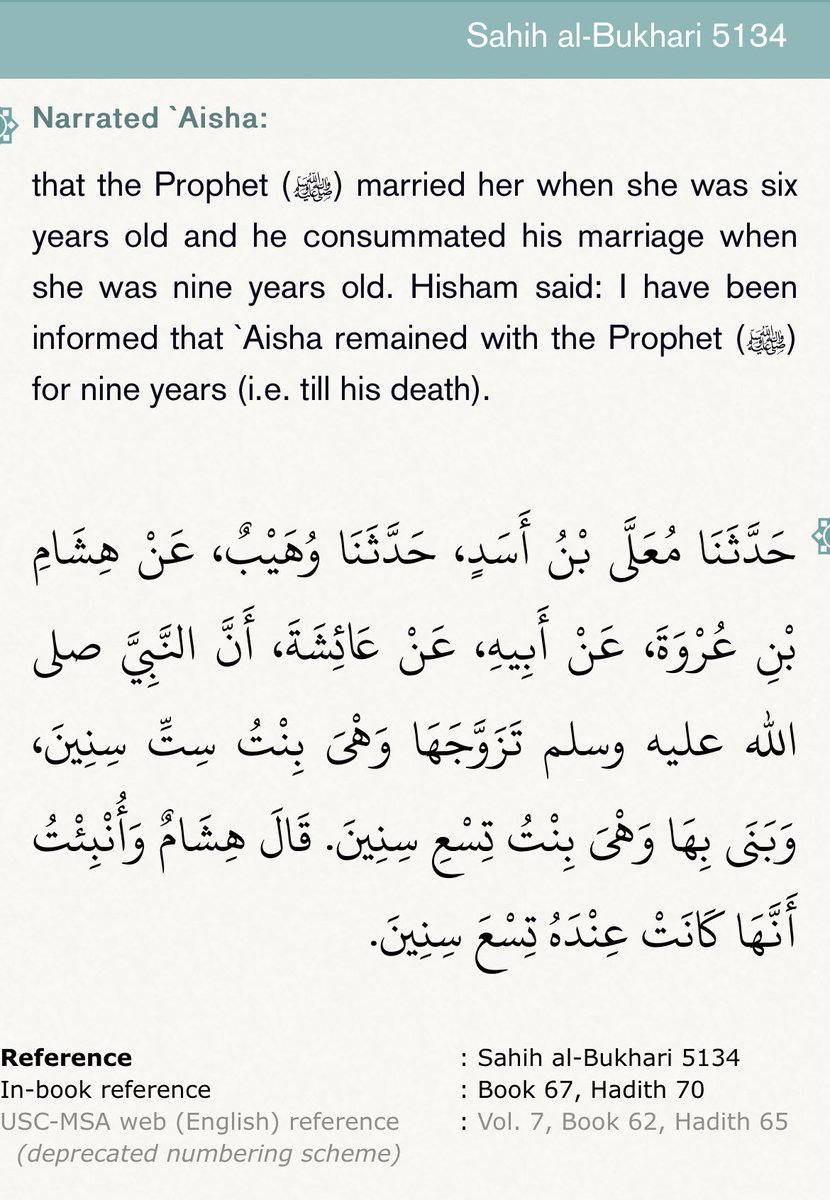 Sahih al-Bukhari 5134
Narrated `Aisha:
that the Prophet (ﷺ) married her when she was six
years old and he consummated his marriage when
she was nine years old. Hisham said: I have been
informed that `Aisha remained with the Prophet (ﷺ)
for nine years (i.e. till his death).
حَدَّثَنَا مُعَلَّى بْنُ أَسَدٍ، حَدَّثَنَا وُهَيْبٌ، عَنْ هِشَامِ
بْنِ عُرْوَةَ، عَنْ أَبِيهِ، عَنْ عَائِشَةَ، أَنَّ النَّبِيَّ صلى
الله عليه وسلم تَزَوَّجَهَا وَهْىَ بِنْتُ سِتِّ سِنِينَ،
وَبَنَى بِهَا وَهْىَ بِنْتُ تِسْعِ سِنِينَ. قَالَ هِشَامٌ وَأُنْبِئْتُ
أَنَّهَا كَانَتْ عِنْدَهُ تِسْعَ سِنِينَ.
Reference : Sahih al-Bukhari 5134
In-book reference : Book 67, Hadith 70
USC-MSA web (English) reference : Vol. 7, Book 62, Hadith 65
(deprecated numbering scheme)